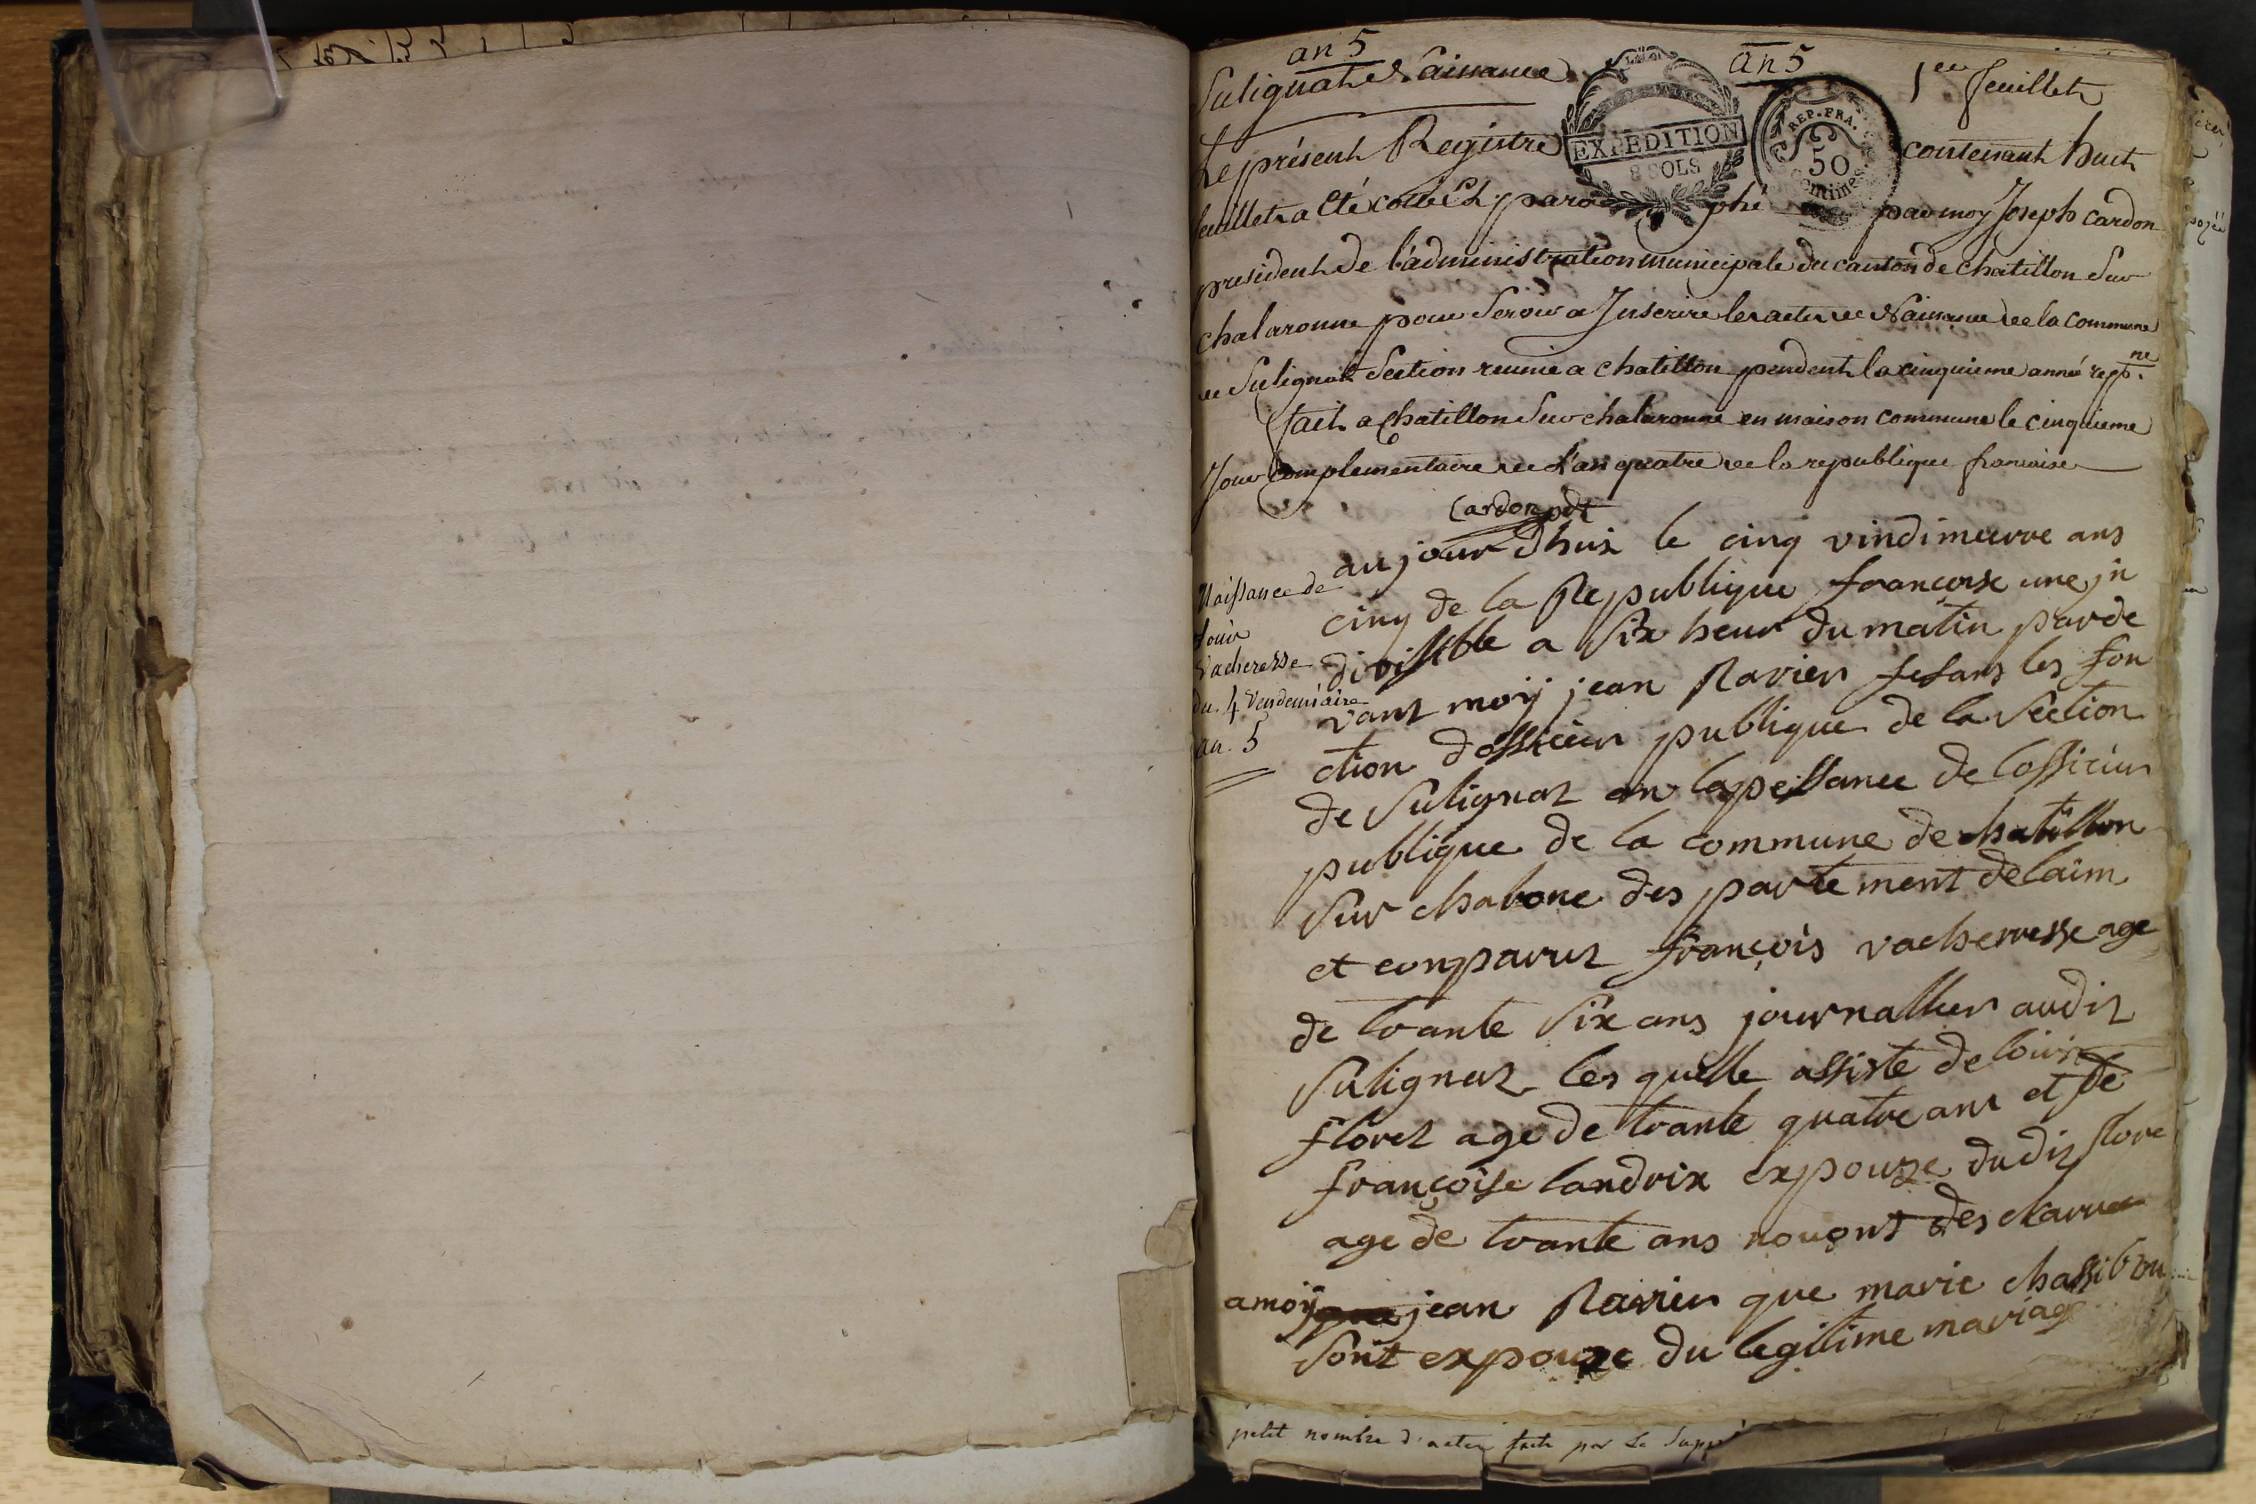 an 5
an 5
Sulignat Naissance
1er feuillet
EXPEDITION
8 SOLS
REP. FRA.
50
Centimes
Le présent Registre contenant huit
feuillet a été cotté & paraphé par moy Joseph Cardon
president de l'administration municipale du canton de chatillon Sur
chalaronne pour Servir a Inscrire les actes de Naissance de la commune
de Sulignat Section reunie a chatillon pendent la cinquieme année repne.
fait a Chatillon Sur chalaronne en maison commune le cinquieme
Jour complementaire de L'an quatre de la republique francaise
Cardon pdt
Naissance de
Louis
Vacheresse
du 4 Vendemiaire
an. 5
aujour dhuix le cinq vindimearre ans
cinq de la Republique francoise une jn
divissible a Six heur du matin parde
vant moÿ jean Ravier fesans les fon
ction dofficier publique de la Section
de Sulignat an lapessance de lofficier
publique de la commune de chatillon
Sur chalone des partement de laim
et comparut françois vacherresse age
de trante Six ans journallier audit
Sulignat les quelle assiste de louis
floret age de trante quatre ans et de
françoise landrix expouze dudit flore
age de trante ans nouont des clarre
amoÿ jean Ravier que marie chassibou
Sont expouze du legitime mariage
petit nombre d'actes faits par Le Supp